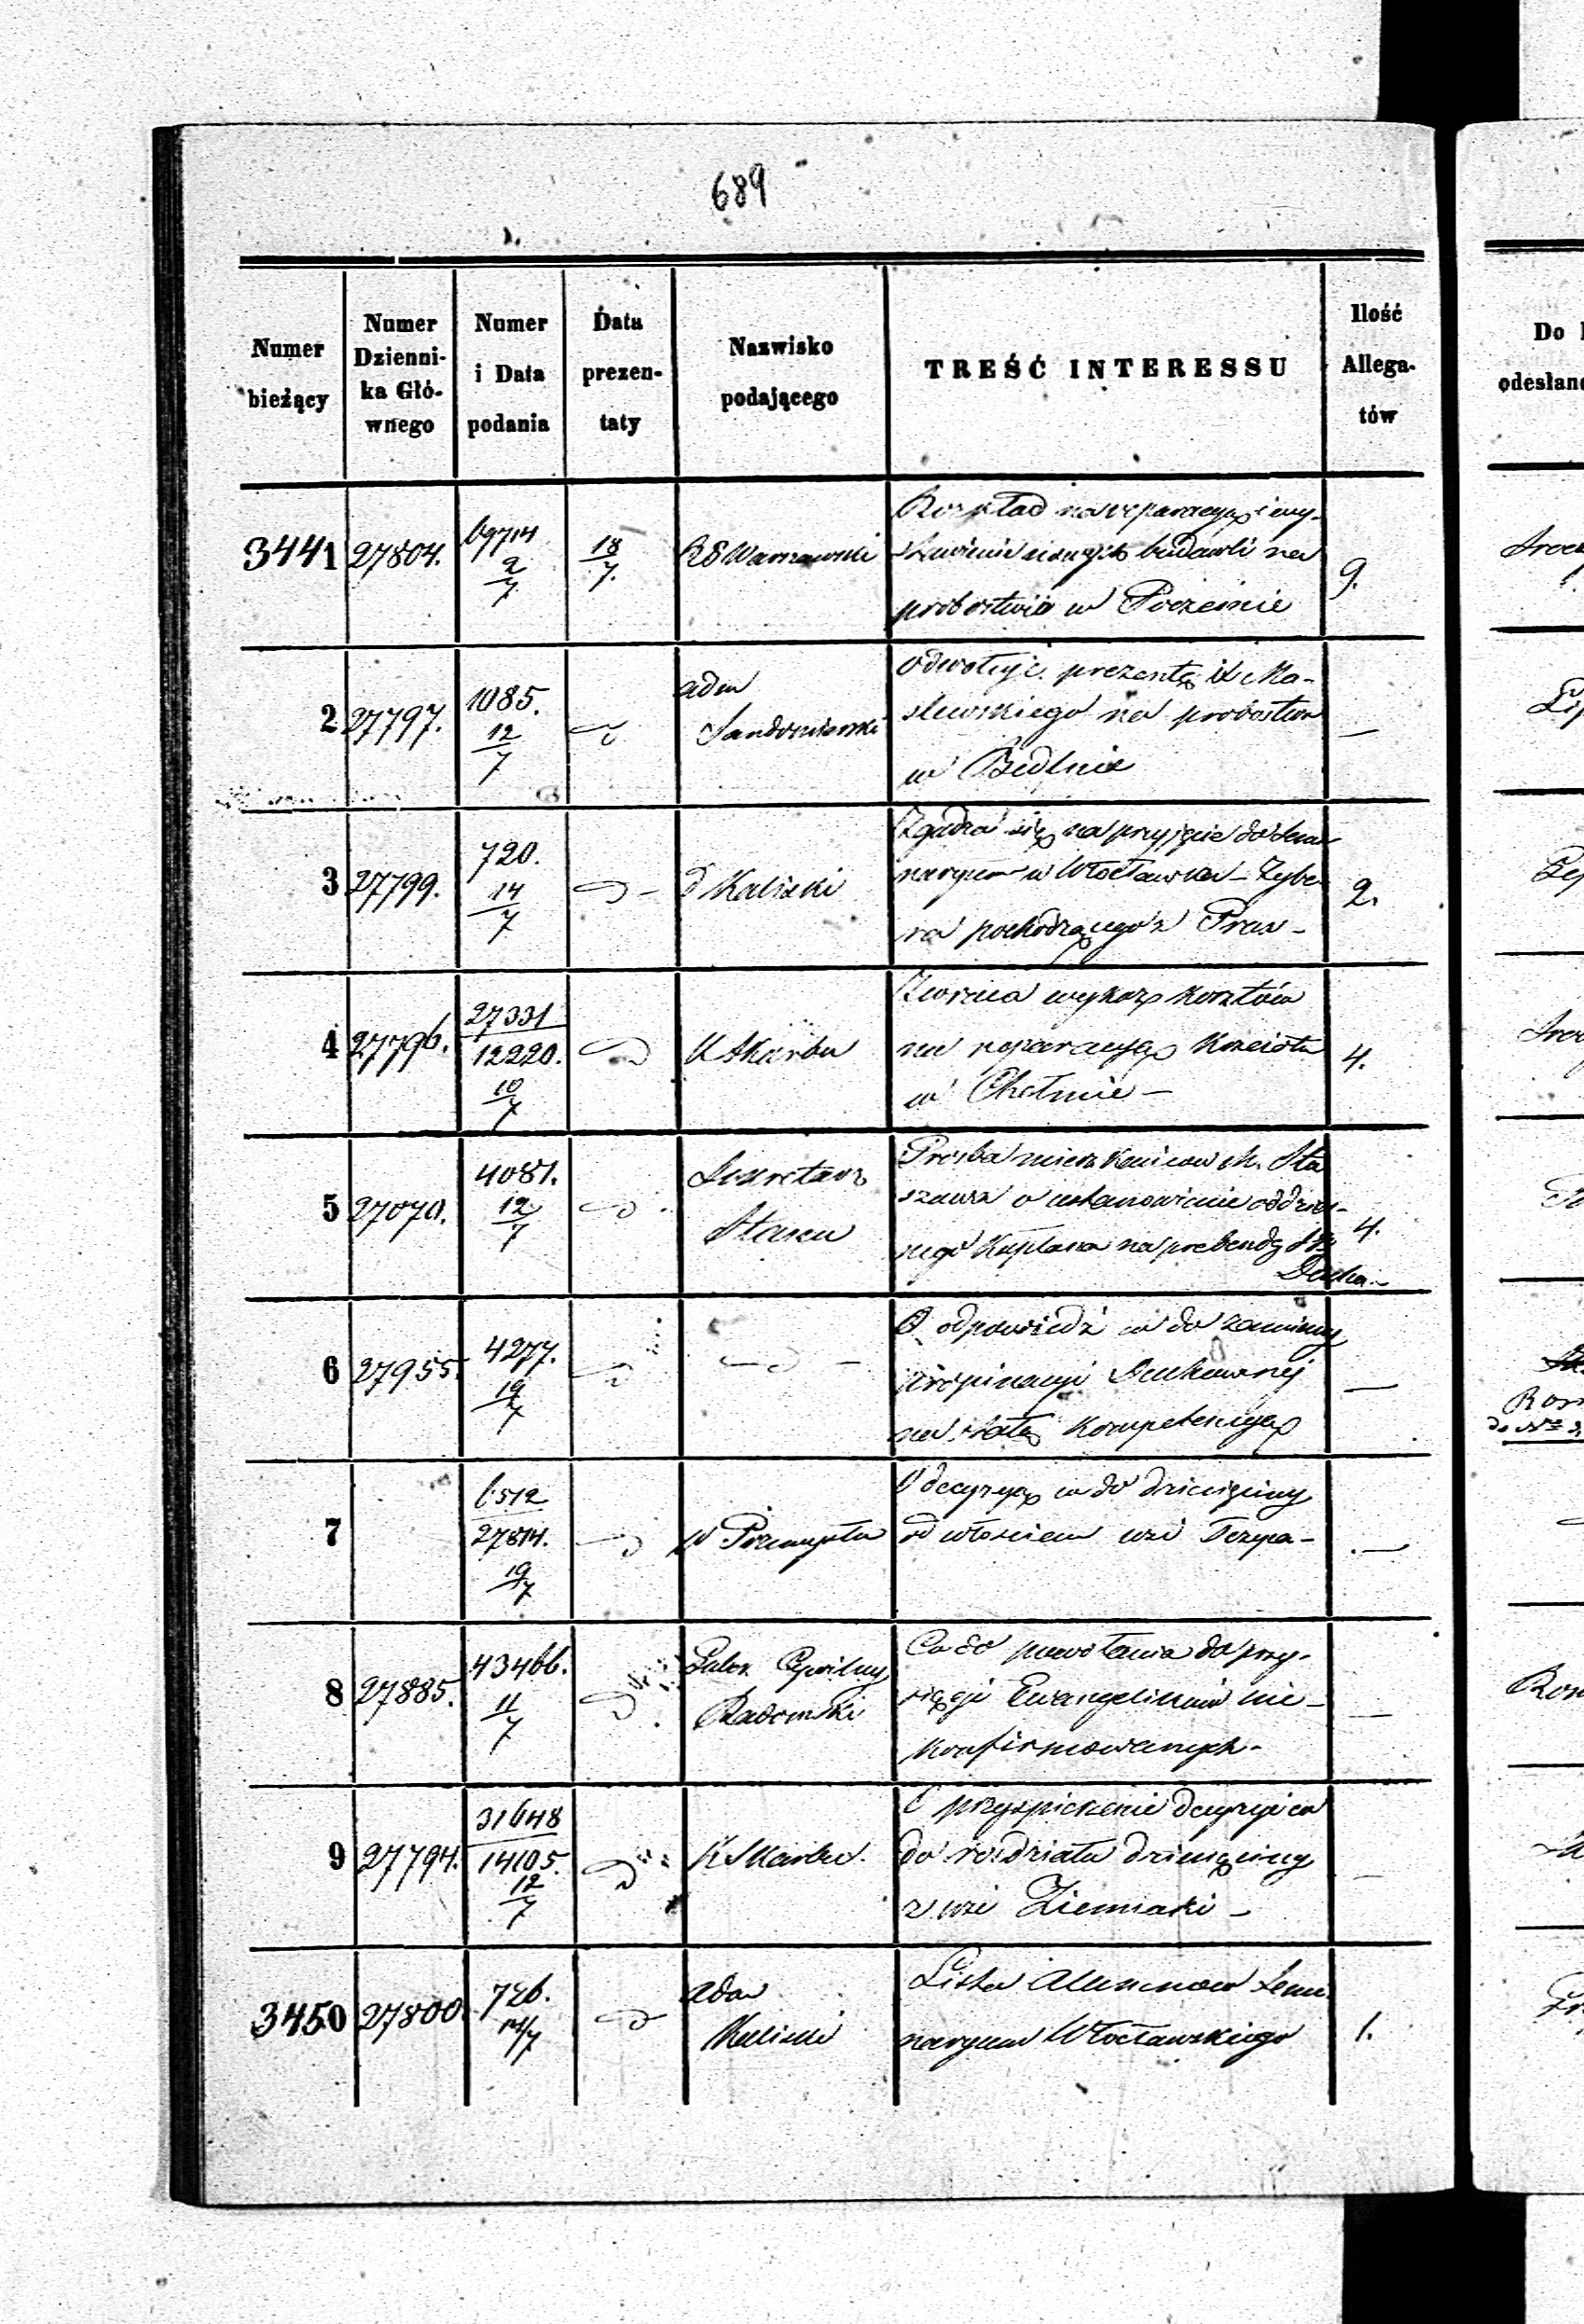 689
Numer bieżący
Numer Dzienni- ka Głó- wnego
Numer i Data podania
Data prezen- taty
Nazwisko podającego
TREŚĆ INTERESSU
Ilość Allega- tów
Do
odesłano
3441 27804. 69714 2/7 18/7. RG Warszawski
Rozkład na reparacyę i wy-
stawienie nowych budowli na
probostwie w Poczernie
9.
2 27797. 1085. 12/7 adm Sandomierski
odwołuje prezentę X Ma-
słowskiego na probostwo
w Bedlnie
—
3 27799. 720. 14/7 d Kaliski
Zgadza się na przyjęcie do Semi
naryum w Włocławku
pochodzącego z Prus -
2.
4 27796. 27331 12220. 10/7 K Skarbu
Zwraca wykaz kosztów
na reparacyę Kościoła
w Chełmie -
4.
5 27070. 4081. 12/7 Sekretarz Stanu
Prośba mieszkańców M. Sta
szowa o ustanowienie oddziel-
nego Kapłana na prebendę Sgo
Ducha -
4.
6 27955. 4277. 19/7 —
O odpowiedź co do zamiany
propinacyi Duchownej
na stałą kompetencyę
—
7 6512 27814. 19/7
O decyzyę co do dziesięciny
od włościan wsi
—
8 27885. 43466. 11/7 Guber. Cywilny Radomski
Co do powołania do przy-
sięgi Ewangelików nie-
konfirmowanych -
—
9 27794. 31648 14105. 12/7 K Skarbu.
O przyspieszenie decyzyi co
do rozdziału dziesięciny
z wsi Ziemiaki -
—
3450 27800. 726. 14/7 adm Kaliski
Lista Alumnow Semi
naryum Włocławskiego
1.